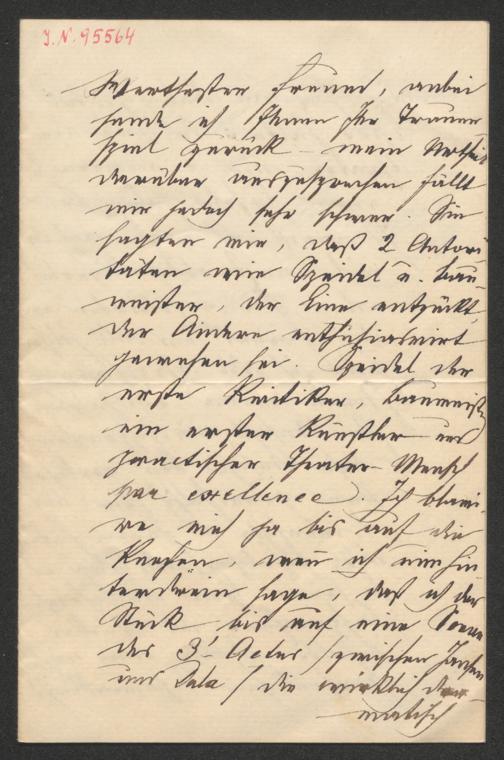 J. N. 95564
Werthester Freund, anbei
sende ich Ihnen Ihr Trauer
spiel zurück – mein Urtheil
darüber auszusprechen fällt
mir jedoch sehr schwer. Sie
sagten mir, daß 2 Autori
täten wie Speidel u. Bau
meister, der Eine entzückt,
der Andere enthusiasmirt
gewesen sei. Speidel der
erste Kritiker, Baumeister
ein erster Künstler und
practischer Theater-Mensch
par exellence. Ich blami-
re mich ja bis auf die
Knochen, wenn ich nun hin
terdrein sage, daß ich das
Stück bis auf eine Scene
des 3t Actes / zwischen
und / die wirklich dra-
matisch